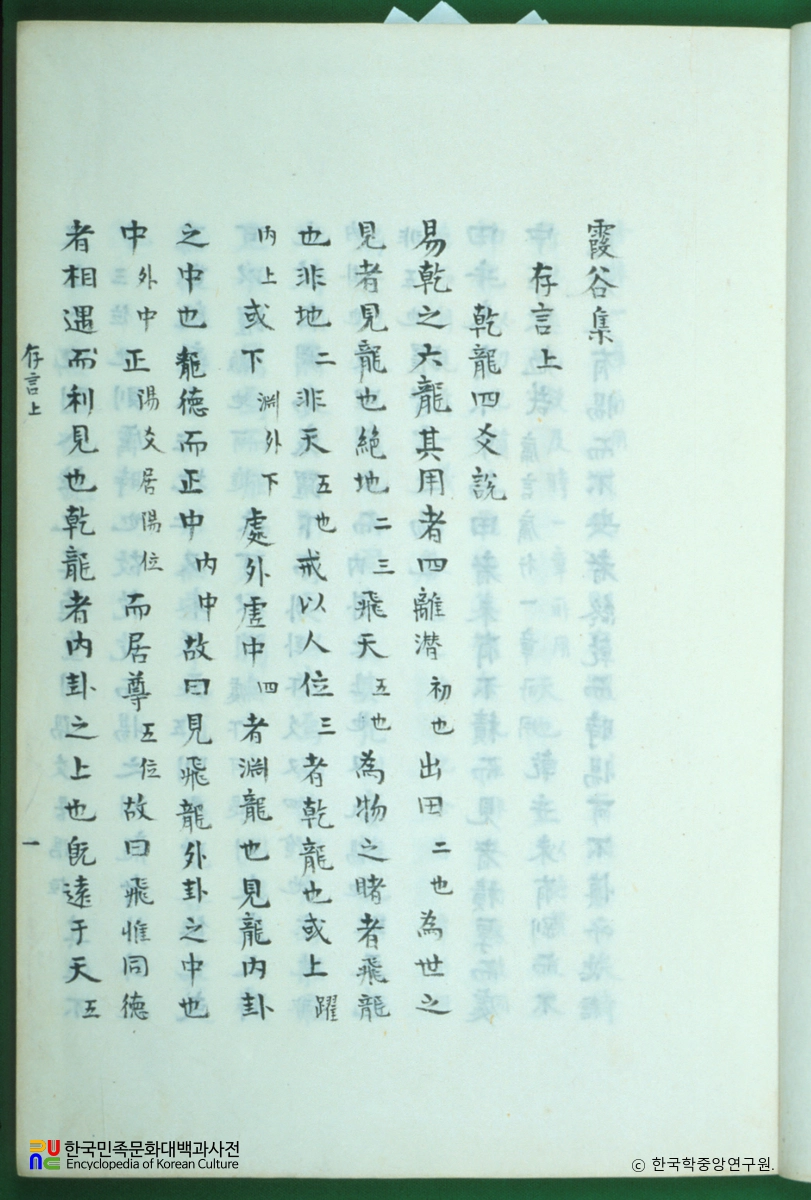 霞谷集
存言上
乾龍四爻說
易乾之六龍其用者四離潛初也出田二也為世之
見者見龍也絶地二三飛天五也為物之睹者飛龍
也非地二非天五也戒以人位三者乾龍也或上躍
内上或下淵外下處外虛中四者淵龍也見龍内卦
之中也龍德而正中内中故曰見飛龍外卦之中也
中外中正陽爻居陽位而居尊五位故曰飛惟同德
者相遇而利見也乾龍者内卦之上也旣遠于天五
存言上
一
한국민족문화대백과사전
Encyclopedia of Korean Culture
ⓒ 한국학중앙연구원.